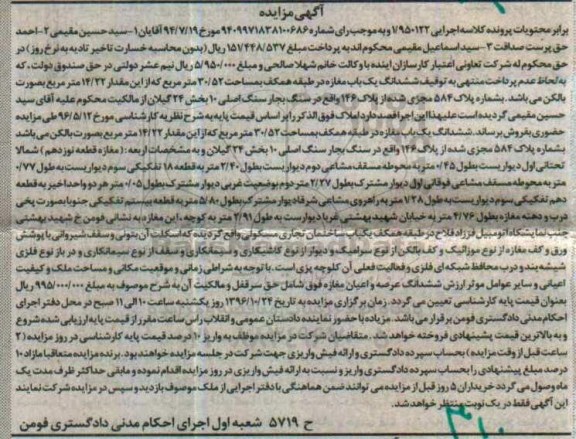 آگهی مزایده
برابر محتویات پرونده کلاسه اجرایی ۱/۹۵۰۱۲۲ و به موجب رای شماره ۹۴۰۹۹۷۱۸۳۸۱۰۰۶۸۶ مورخ ۹۴/۷/۱۹ آقایان ۱- سید حسین مقیمی ۲- احمد
حق پرست صداقت ۳- سید اسماعیل مقیمی محکوم اند به پرداخت مبلغ ۱۵۷/۴۴۸/۵۳۷ ریال (بدون محاسبه خسارت تاخیر تادیه به نرخ روز) در
حق محکوم له شرکت تعاونی اعتبار کارسازان اینده با وکالت خانم شهلا صالحی و مبلغ ۵/۹۵۰/۰۰۰ ریال نیم عشر دولتی در حق صندوق دولت، که
به لحاظ عدم پرداخت منتهی به توقیف ششدانگ یک باب مغازه در طبقه همکف بمساحت ۳۰/۵۲ متر مربع که از این مقدار ۱۴/۲۲ متر مربع بصورت
بالکن می باشد. بشماره پلاک ۵۸۴ مجزی شده از پلاک ۱۴۶ واقع در سنگ بجار سنگ اصلی ۱۰ بخش ۲۴ گیلان از مالکیت محکوم علیه آقای سید
حسین مقیمی گردیده است علیهذا این اجرا قصد دارد املاک فوق الذکر را بر اساس قیمت پایه به شرح نظریه کارشناسی مورخ ۹۶/۵/۱۲ طی مزایده
حضوری بفروش برساند. ششدانگ یک باب مغازه در طبقه همکف بمساحت ۳۰/۵۲ متر مربع که از این مقدار ۱۴/۲۲ متر مربع بصورت بالکن می باشد
بشماره پلاک ۵۸۴ مجزی شده از پلاک ۱۴۶ واقع در سنگ بجار سنگ اصلی ۱۰ بخش ۲۴ گیلان و به مشخصات اربعه: (مغازه قطعه نوزدهم) شمالا
تحتانی اول دیواریست بطول ۰/۴۵ متر به محوطه مسقف مشاعی دوم دیواریست بطول ۲/۴۰ متر به قطعه ۱۸ تفکیکی سوم دیواریست به طول ۰/۷۷
متر به محوطه مسقف مشاعی فوقانی اول دیوار مشترک بطول ۲/۲۷ متر دوم بوضعیت غربی دیوار مشترک بطول ۰/۰۵ متر هر دو واحد اخیر به قطعه
دهم تفکیکی سوم دیواریست به طول ۱/۲۸ متر به راهروی مشاعی شرقا دیوار مشترک بطول ۵/۸۰ متر به قطعه بیستم تفکیکی جنوبا بصورت پخی
درب و دهنه مغازه بطول ۴/۷۶ متر به خیابان شهید بهشتی غربا دیواریست به طول ۲/۹۱ متر به کوچه، این مغازه به نشانی فومن خ شهید بهشتی
جنب نمایشگاه اتومبیل فرزاد فلاح در طبقه همکف یکباب ساختمان تجاری مسکونی واقع گردیده که اسکلت آن بتونی و سقف شیروانی با پوشش
ورق و کف مغازه از نوع موزائیک و کف بالکن از نوع سرامیک و دیوار از نوع کاشیکاری و سیمانکاری و سقف از نوع سیمانکاری و در باز نوع فلزی
شیشه بند و درب محافظ شبکه ای فلزی و فعالیت فعلی آن کلوچه پزی است. با توجه به شرایطی زمانی و موقعیت مکانی و مساحت ملک و کیفیت
اعیانی و سایر عوامل موثر ارزش ششدانگ عرصه و اعیان مغازه فوق شامل حق سرقفلی و مالکیت آن به شرح موصوف به مبلغ ۹۹۵/۰۰۰/۰۰۰ ریال
بعنوان قیمت پایه کارشناسی تعیین می گردد. زمان برگزاری مزایده به تاریخ ۱۳۹۶/۱۰/۲۴ روز یکشنبه ساعت ۱۰ الی ۱۱ صبح در محل دفتر اجرای
احکام مدنی دادگستری فومن برقرار می باشد. مزایده با حضور نماینده دادستان عمومی و انقلاب راس ساعت مقرر از قیمت پایه ارزیابی شده شروع
و به بالاترین قیمت پیشنهادی فروخته خواهد شد. متقاضیان شرکت در مزایده موظف به واریز ۱۰ درصد قیمت پایه کارشناسی در روز مزایده (۲
ساعت قبل از وقت مزایده) بحساب سپرده دادگستری و ارائه فیش واریزی جهت شرکت در جلسه مزایده خواهند بود. برنده مزایده متعاقبا مازاد ۱۰
درصد مبلغ پیشنهادی را بحساب سپرده دادگستری واریز و نسبت به ارائه فیش واریزی در روز مزایده اقدام نموده و مابقی حداکثر ظرف مدت یک
ماه وصول می گردد خریداران ۵ روز قبل از مزایده می توانند ضمن هماهنگی با دفتر اجرایی از ملک موصوف بازدید و سپس در مزایده شرکت نمایند
این آگهی فقط در یک نوبت منتظر خواهد شد.
ح ۵۷۱۹ شعبه اول اجرای احکام مدنی دادگستری فومن